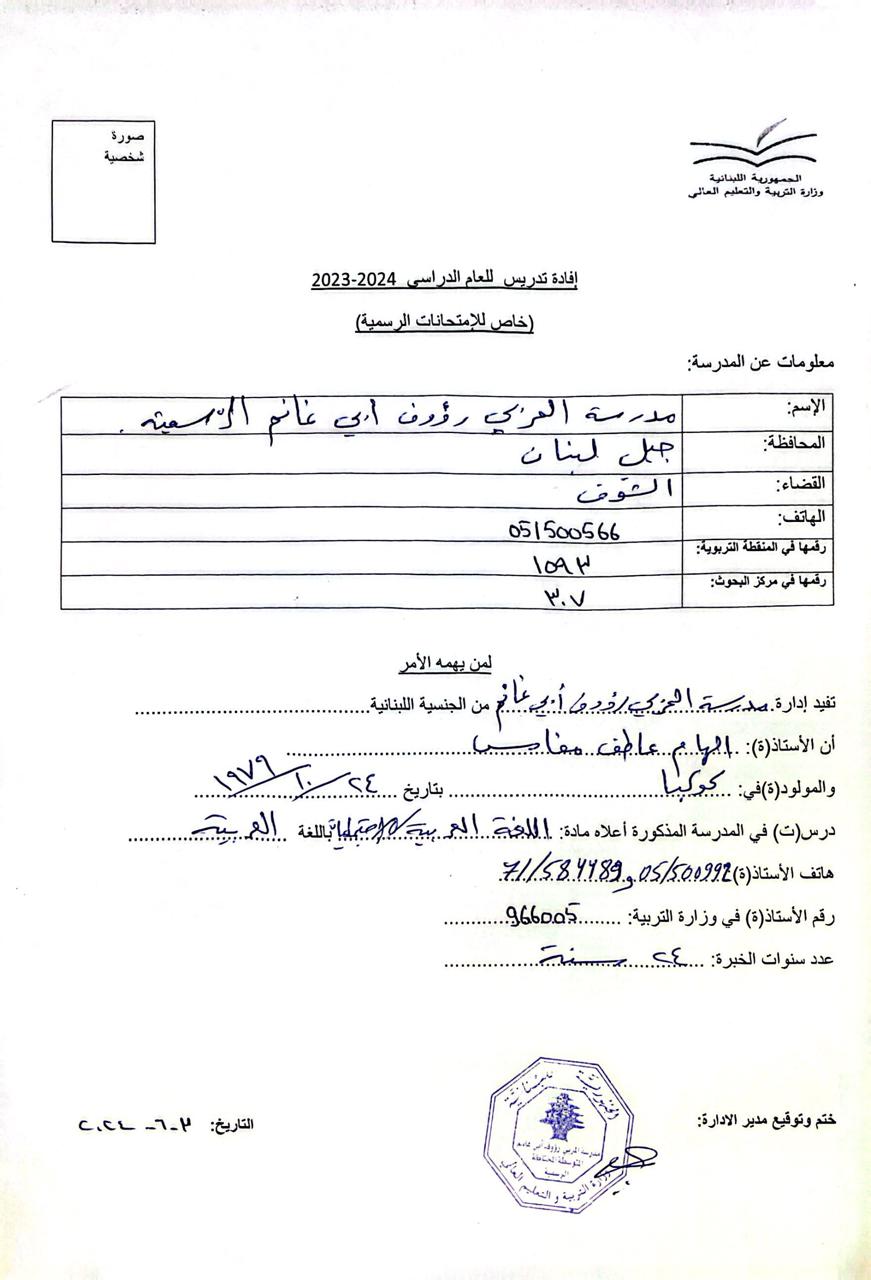 صورة
شخصية
الجمهورية اللبنانية
وزارة التربية والتعليم العالي
إفادة تدريس للعام الدراسي 2023-2024
(خاص للإمتحانات الرسمية)
معلومات عن المدرسة:
الإسم: مدرسة المربي رؤوف أبي غانم الرّسمية.
المحافظة: جبل لبنان
القضاء: الشوف
الهاتف: 05/500566
رقمها في المنقطة التربوية: ١٥٩٣
رقمها في مركز البحوث: ٣٠٧
لمن يهمه الأمر
تفيد إدارة مدرسة المربي رؤوف أبي غانم من الجنسية اللبنانية
أن الأستاذ(ة): الهام عاطف
والمولود(ة)في: كوكبا بتاريخ ٢٤/١٠/١٩٧٩
درس(ت) في المدرسة المذكورة أعلاه مادة: اللغة العربية/الاجتماعيات باللغة العربية
هاتف الأستاذ(ة) 05/500992 و
رقم الأستاذ(ة) في وزارة التربية: 966005
عدد سنوات الخبرة: ٢٤ سنة
ختم وتوقيع مدير الادارة:
التاريخ: ٣-٦-٢٠٢٤
الجمهورية اللبنانية
مدرسة المربي رؤوف أبي غانم
المتوسطة المختلطة
الرسمية
وزارة التربية و التعليم العالي